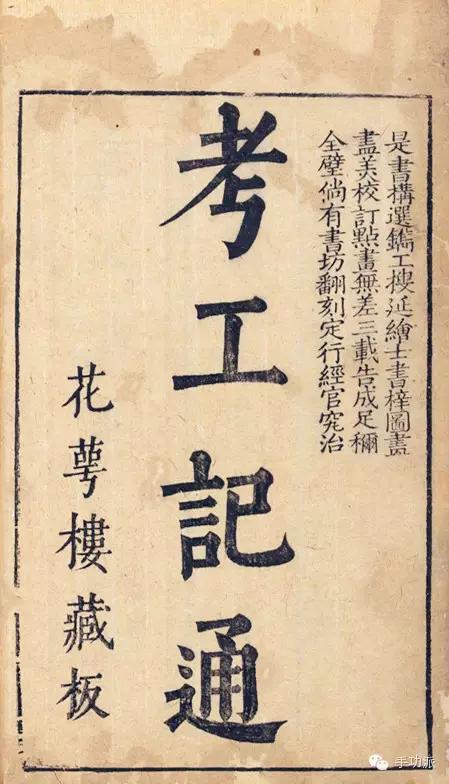 是書構選鐫工搜延繪士書梓圖畫
盡美校訂點畫無差三載告成足稱
全璧倘有書坊翻刻定行經官究治
考工記通
花萼樓藏板
手功派